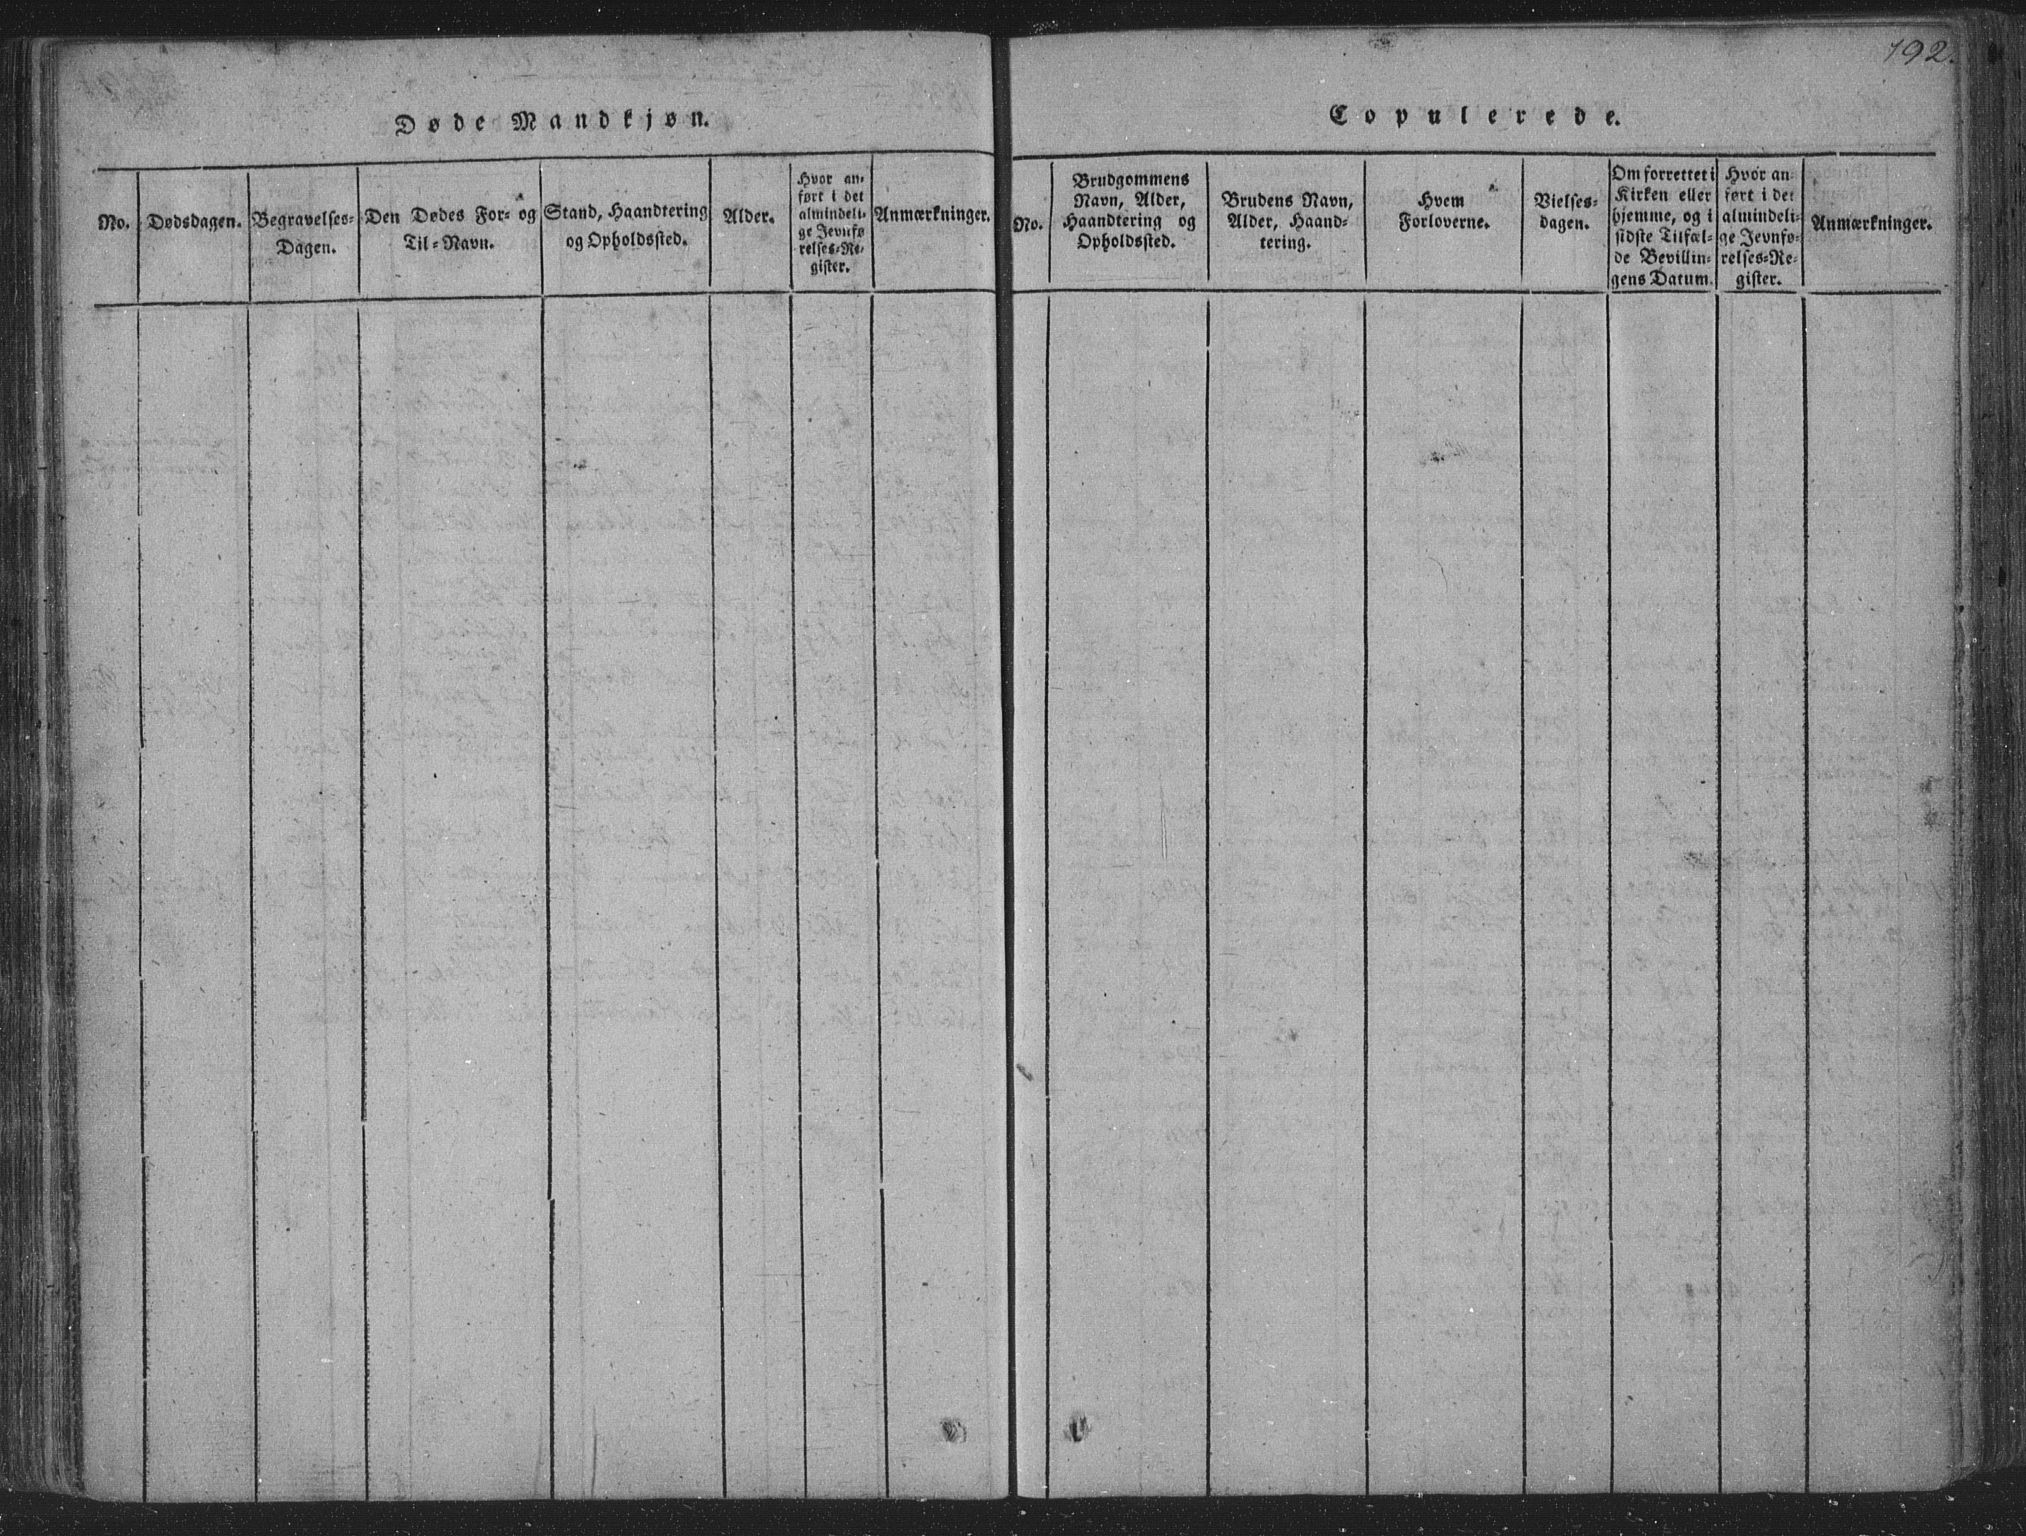 192.
Døde Mandkjøn.
No.
Dødsdagen.
Begravelses-
Dagen.
Den Dødes For- og
Til-Navn.
Stand, Haandtering
og Opholdssted.
Alder.
Hvor an-
ført i det
almindeli-
ge Jevnfø-
relses-Re-
gister.
Anmærkninger.
Copulerede.
No.
Brudgommens
Navn, Alder,
Haandtering og
Opholdssted.
Brudens Navn,
Alder, Haand-
tering.
Hvem
Forloverne.
Vielses-
dagen.
Om forrettet i
Kirken eller
hjemme, og i
sidste Tilfæl-
de Bevillin-
gens Datum.
Hvor an-
ført i det
almindeli-
ge Jevnfø-
relses-Re-
gister.
Anmærkninger.